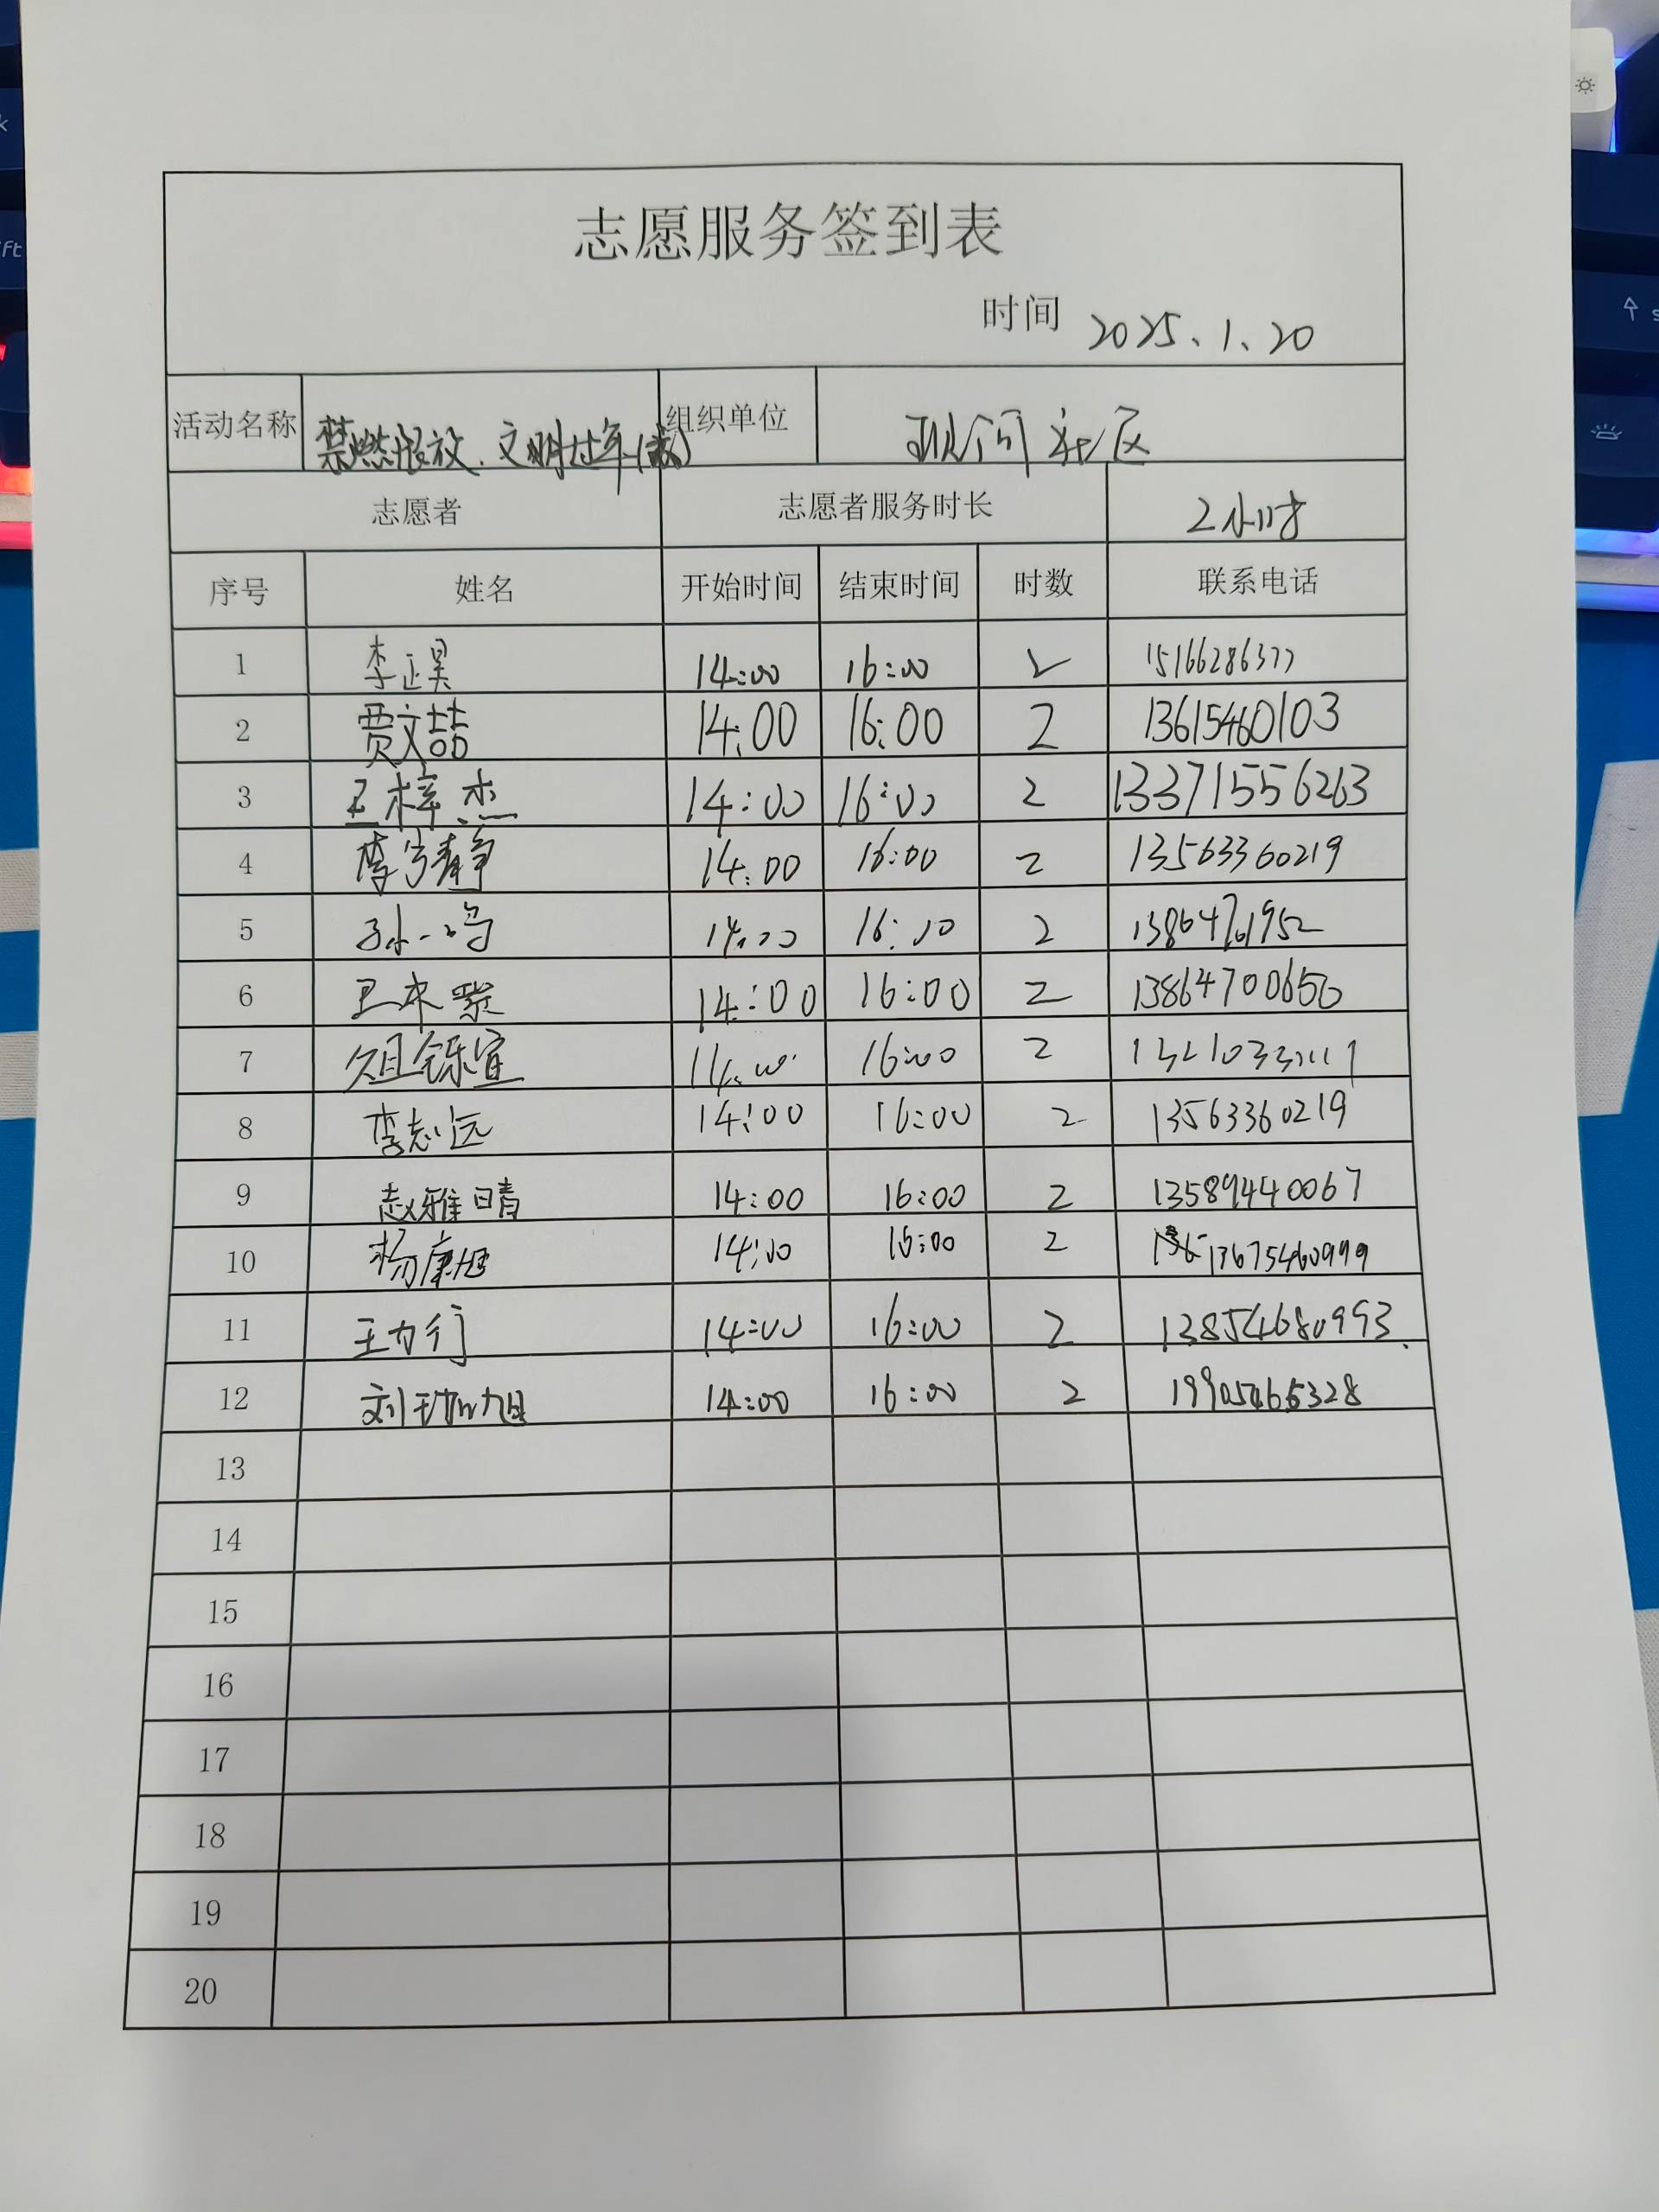 志愿服务签到表
时间 2025.1.20
活动名称 禁燃限放、文明过年 组织单位 社区
志愿者 志愿者服务时长 2小时
序号 姓名 开始时间 结束时间 时数 联系电话
1 李正昊 14:00 16:00 2 15166286377
2 贾文喆 14:00 16:00 2 13615460103
3 王梓杰 14:00 16:00 2 13371556263
4 李兮静 14:00 16:00 2 13563360219
5 孙一鸣 14:00 16:00 2
6 14:00 16:00 2 13864700650
7 14:00 16:00 2
8 李志远 14:00 16:00 2 13563360219
9 赵雅晴 14:00 16:00 2 13589440067
10 杨康旭 14:00 16:00 2 13675460999
11 王力行 14:00 16:00 2 13854680993
12 14:00 16:00 2 19905465328
13
14
15
16
17
18
19
20